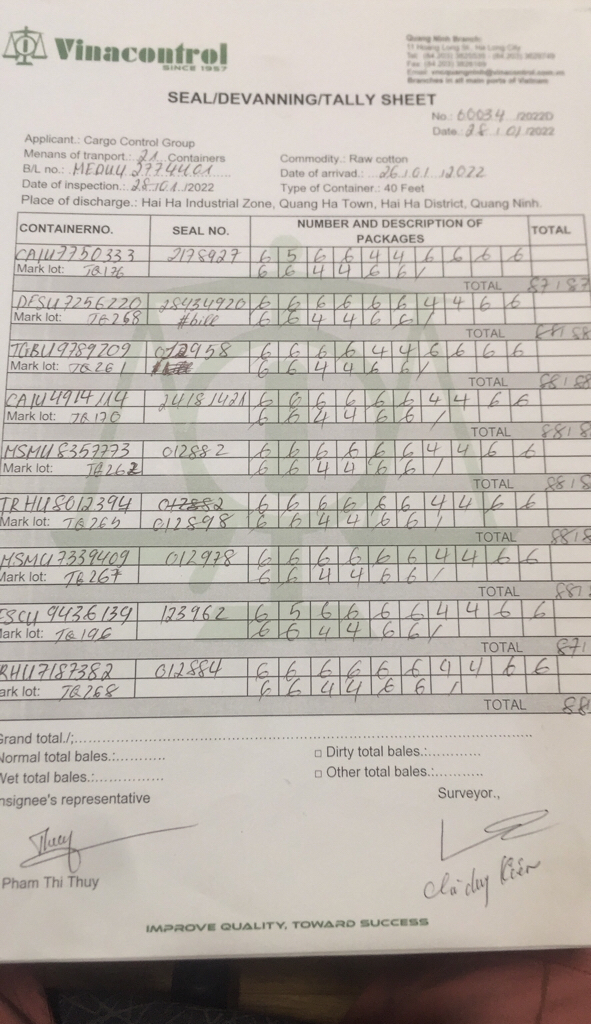 Vinacontrol
SINCE 1957
Quang Ninh Branch:
11 Hoang Long St, Ha Long City
Branches in all main ports of Vietnam
SEAL/DEVANNING/TALLY SHEET
No.: 60034 /2022D
Date.: 28 / 01 /2022
Applicant.: Cargo Control Group
Menans of tranport.: 21 Containers
Commodity.: Raw cotton
B/L no.: MEDUU 2774401
Date of arrivad.: 26/01/2022
Date of inspection.: 28/01/2022
Type of Container.: 40 Feet
Place of discharge.: Hai Ha Industrial Zone, Quang Ha Town, Hai Ha District, Quang Ninh.
CONTAINERNO. SEAL NO. NUMBER AND DESCRIPTION OF PACKAGES TOTAL
CAIU7750333 2178927 6 5 6 6 4 4 6 6 6 6
Mark lot: TQ176 6 6 4 4 6 6 /
TOTAL 87/87
DFSU7256220 28434920 6 6 6 6 6 6 4 4 6 6
Mark lot: TQ268 #bill 6 6 4 4 6 6 /
TOTAL 88/88
TGBU9789209 012958 6 6 6 6 4 4 6 6 6 6
Mark lot: TQ261 6 6 4 4 6 6 /
TOTAL 88/88
CAIU4914114 24181421 6 6 6 6 6 6 4 4 6 6
Mark lot: TQ170 6 6 4 4 6 6 /
TOTAL 88/8
MSMU8357773 012882 6 6 6 6 6 6 4 4 6 6
Mark lot: TQ262 6 6 4 4 6 6 /
TOTAL 88/8
TRHU8012394 012882 6 6 6 6 6 6 4 4 6 6
Mark lot: TQ265 012898 6 6 4 4 6 6 /
TOTAL 88/8
MSMU7339409 012978 6 6 6 6 6 6 4 4 6 6
Mark lot: TQ267 6 6 4 4 6 6 /
TOTAL 88/
ESCU 9436139 123962 6 5 6 6 6 6 4 4 6 6
ark lot: TQ196 6 6 4 4 6 6 /
TOTAL 87/
RHU7187382 012884 6 6 6 6 6 6 4 4 6 6
ark lot: TQ268 6 6 4 4 6 6 /
TOTAL 88
Grand total./:
Normal total bales.:
□ Dirty total bales.:
Wet total bales.:
□ Other total bales.:
nsignee's representative
Surveyor.,
Thuy
Pham Thi Thuy
IMPROVE QUALITY, TOWARD SUCCESS